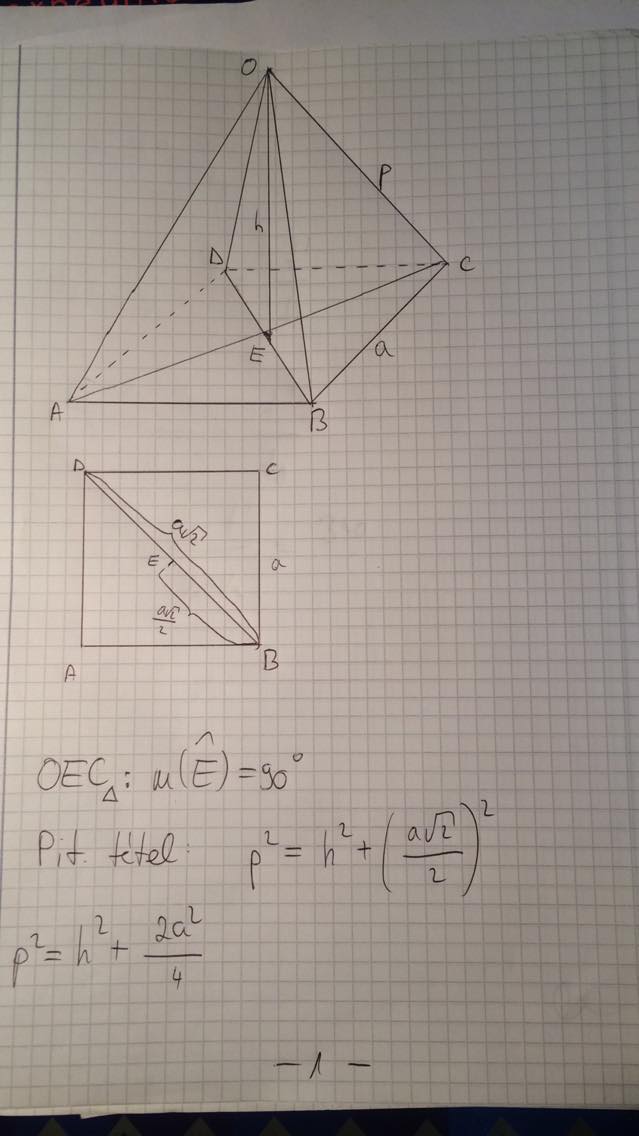 O
p
h
D
C
E
a
A
B
D
C
a√2
E
a
a√2/2
A
B
OEC△: m(Ê)=90°
Pit. tétel: p² = h² + (a√2/2)²
p² = h² + 2a²/4
— 1 —